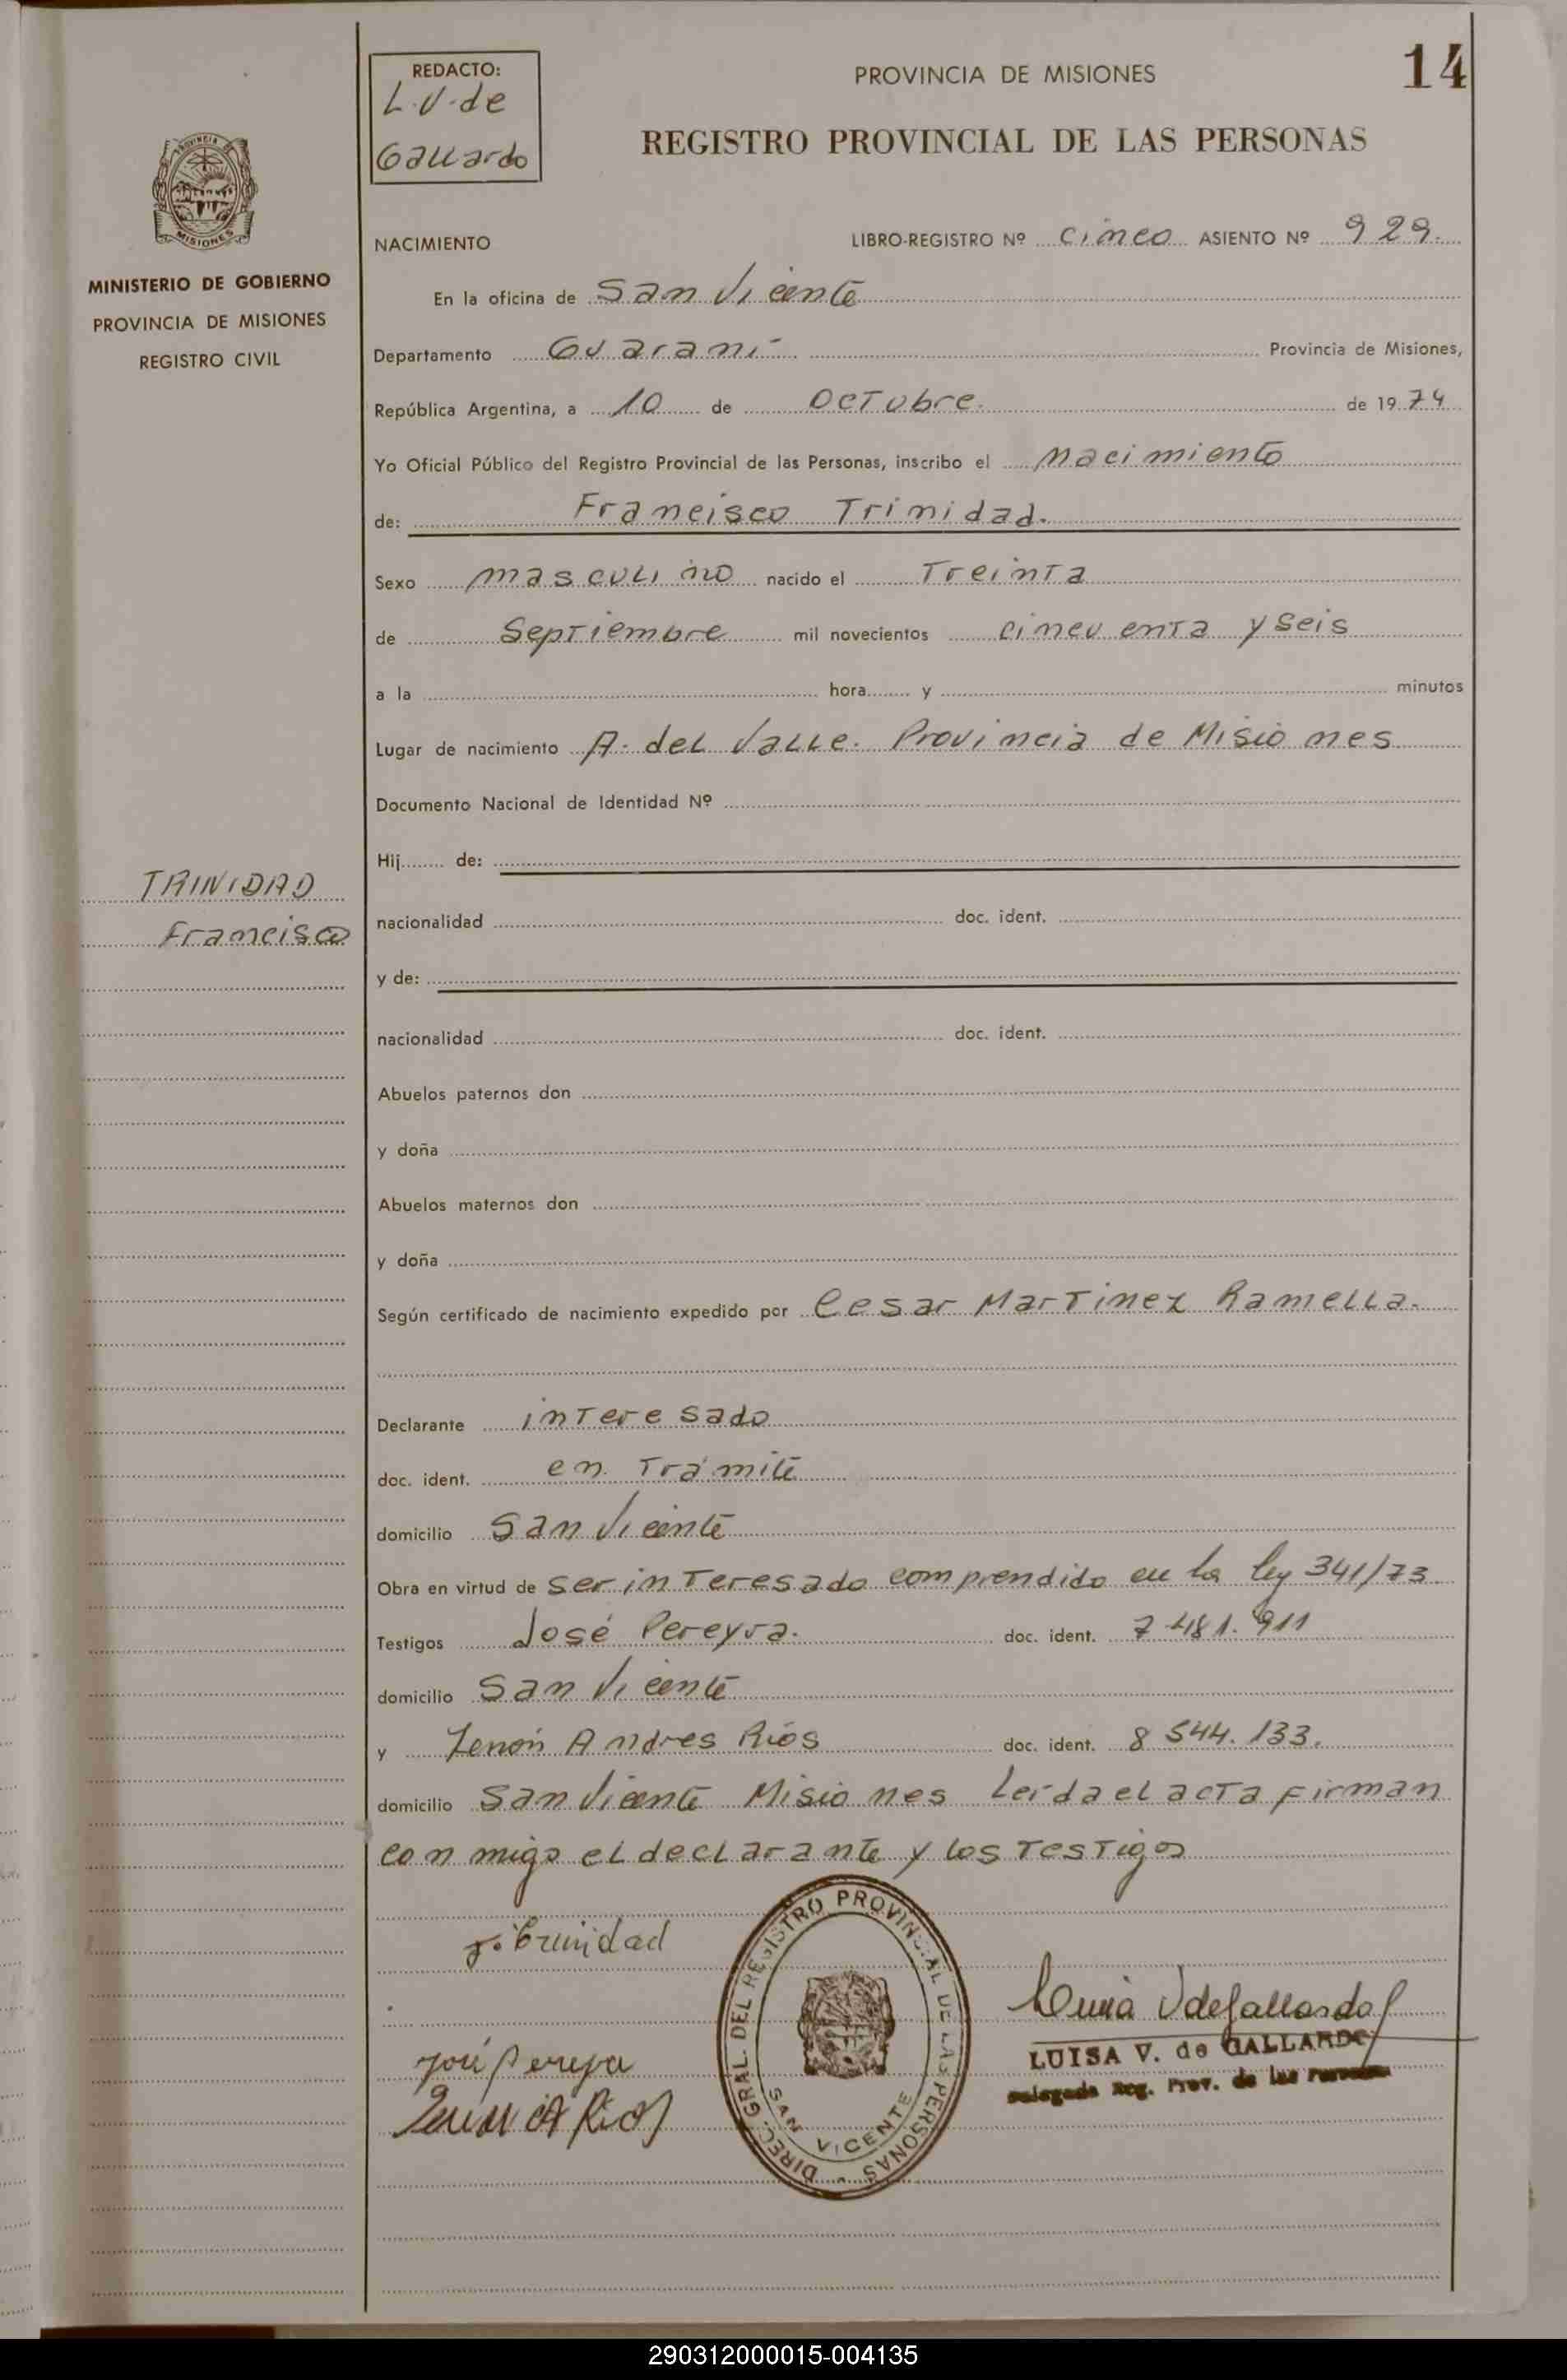 14
REDACTO:
L.V. de
Gallardo
PROVINCIA DE MISIONES
REGISTRO PROVINCIAL DE LAS PERSONAS
PROVINCIA DE
MISIONES
MINISTERIO DE GOBIERNO
PROVINCIA DE MISIONES
REGISTRO CIVIL
NACIMIENTO
LIBRO-REGISTRO Nº cinco ASIENTO Nº 929.
En la oficina de San Vicente
Departamento Guaraní Provincia de Misiones,
República Argentina, a 10 de Octubre. de 1974
Yo Oficial Público del Registro Provincial de las Personas, inscribo el nacimiento
de: Francisco Trinidad.
Sexo masculino nacido el Treinta
de Septiembre mil novecientos cincuenta y seis
a la hora y minutos
Lugar de nacimiento A. del Valle. Provincia de Misiones
Documento Nacional de Identidad Nº
Hij de:
TRINIDAD
Francisco
nacionalidad doc. ident.
y de:
nacionalidad doc. ident.
Abuelos paternos don
y doña
Abuelos maternos don
y doña
Según certificado de nacimiento expedido por Cesar Martinez Ramella.
Declarante interesado
doc. ident. en Trámite
domicilio San Vicente
Obra en virtud de ser interesado comprendido en la ley 341/73
Testigos José Pereyra. doc. ident. 7 481. 911
domicilio San Vicente
y Zenón Andres Ríos doc. ident. 8 544. 133.
domicilio San Vicente Misiones Leída el acta firman
conmigo el declarante y los Testigos
DIREC. GRAL. DEL REGISTRO PROVINCIAL DE LAS PERSONAS
SAN VICENTE
LUISA V. de GALLARDO
Delegada Reg. Prov. de las Personas
290312000015-004135